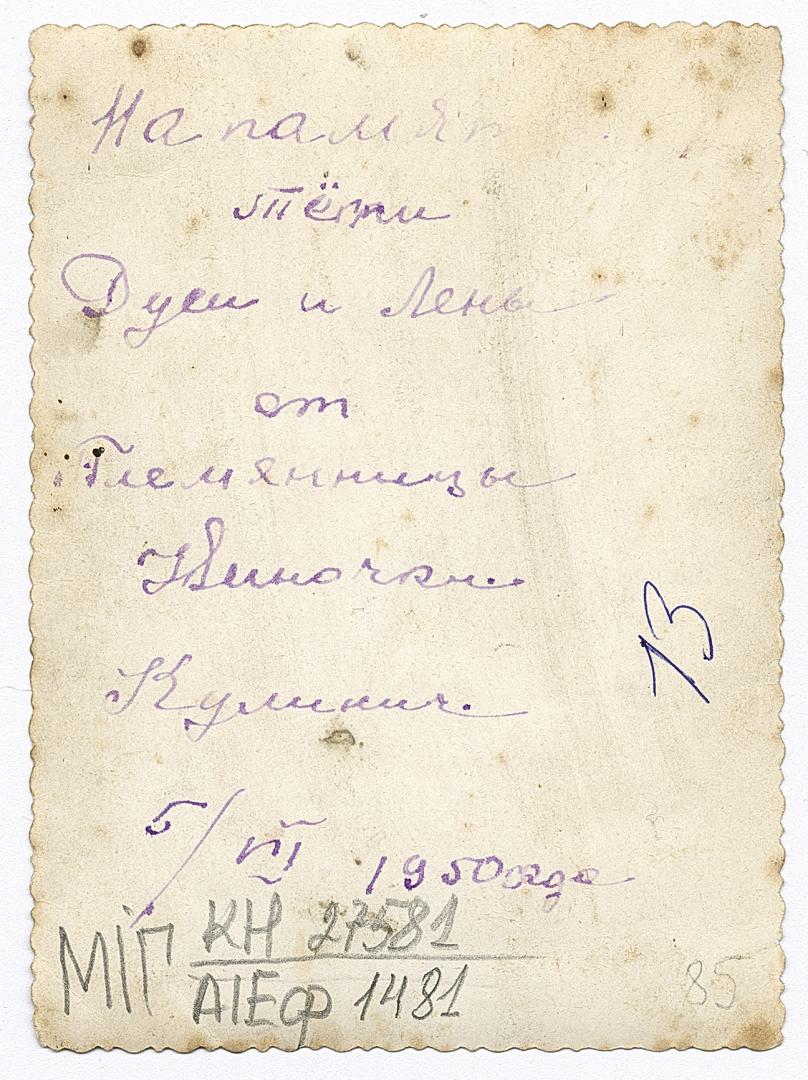 На памят
тёти
Дуси и Лены
от
Племянницы
Ниночки
Кулинич.
5/VII 1950 года
13
МІП КН 27581
АІЕФ 1481
85